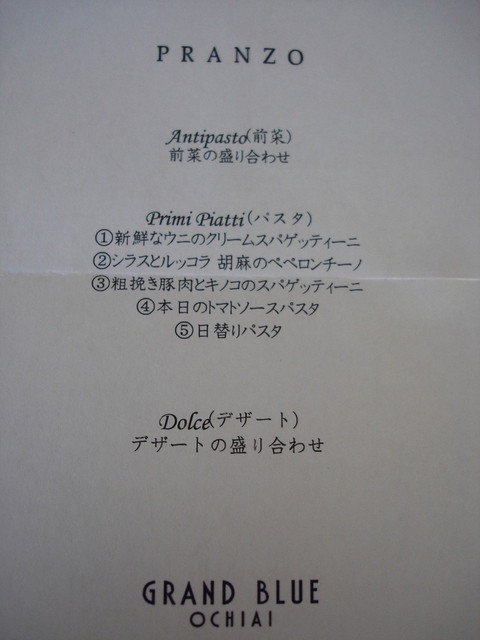 PRANZO
Antipasto(前菜)
前菜の盛り合わせ
Primi Piatti(パスタ)
①新鮮なウニのクリームスパゲッティーニ
②シラスとルッコラ 胡麻のペペロンチーノ
③粗挽き豚肉とキノコのスパゲッティーニ
④本日のトマトソースパスタ
⑤日替りパスタ
Dolce(デザート)
デザートの盛り合わせ
GRAND BLUE
OCHIAI